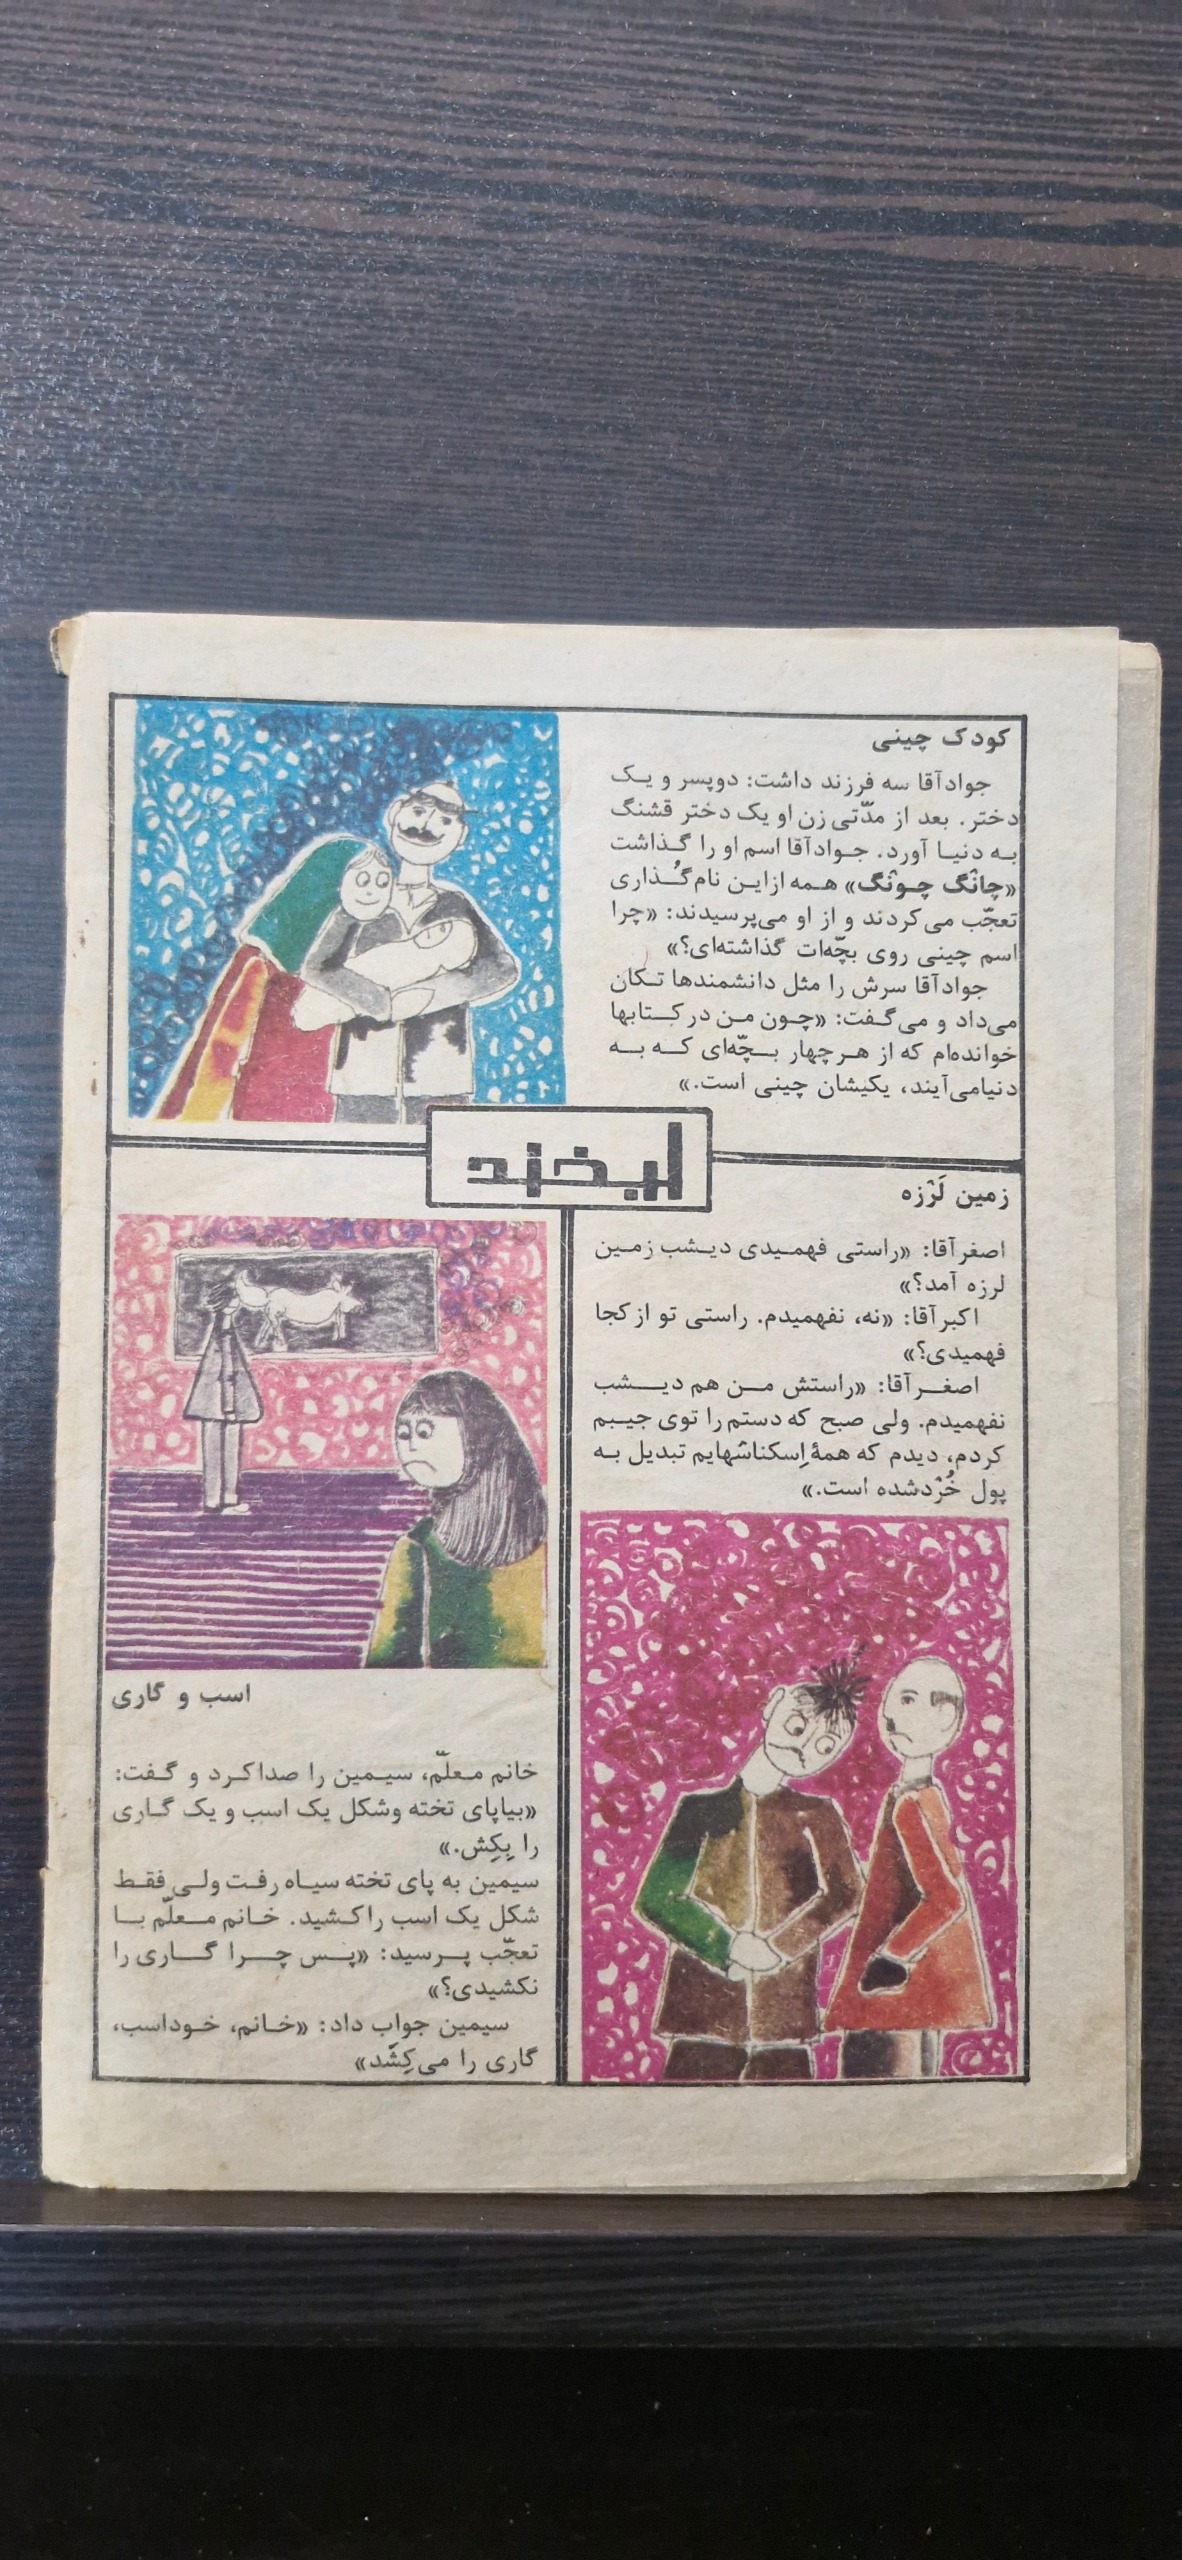 کودک چینی
جوادآقا سه فرزند داشت: دوپسر و یک
دختر. بعد از مدّتی زن او یک دختر قشنگ
به دنیا آورد. جوادآقا اسم او را گذاشت
«چانگ چونگ» همه ازاین نام‌گُذاری
تعجّب می‌کردند و از او می‌پرسیدند: «چرا
اسم چینی روی بچّه‌ات گذاشته‌ای؟»
جوادآقا سرش را مثل دانشمندها تکان
می‌داد و می‌گفت: «چون من در کتابها
خوانده‌ام که از هر چهار بچّه‌ای که به
دنیامی‌آیند، یکیشان چینی است.»
لبخند
زمین لَرْزه
اصغرآقا: «راستی فهمیدی دیشب زمین
لرزه آمد؟»
اکبرآقا: «نه، نفهمیدم. راستی تو از کجا
فهمیدی؟»
اصغرآقا: «راستش من هم دیشب
نفهمیدم. ولی صبح که دستم را توی جیبم
کردم، دیدم که همهٔ اِسکناسهایم تبدیل به
پول خُرْدشده است.»
اسب و گاری
خانم معلّم، سیمین را صداکرد و گفت:
«بیاپای تخته وشکل یک اسب و یک گاری
را بِکِش.»
سیمین به پای تخته سیاه رفت ولی فقط
شکل یک اسب راکشید. خانم معلّم با
تعجّب پرسید: «پس چرا گاری را
نکشیدی؟»
سیمین جواب داد: «خانم، خوداسب،
گاری را می‌کِشَد»